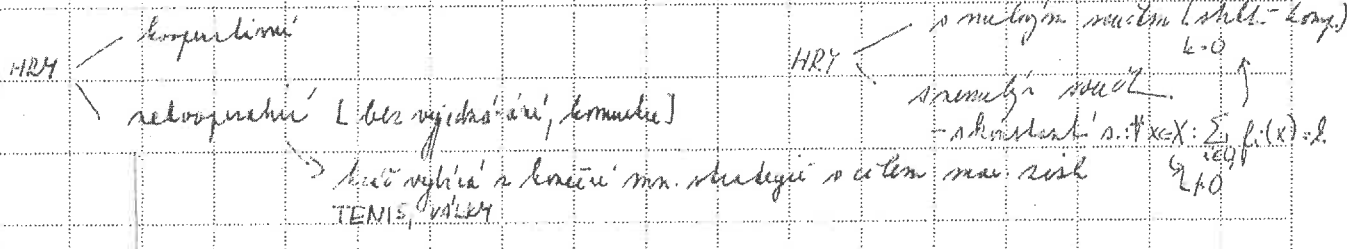 HRY
kooperativní
nekooperativní [bez vyjednávání, komunikace]
hráč vybírá z konečné mn. strategií s cílem max. zisk
TENIS, VÁLKY
HRY
s nulovým součtem
k=0
s nenulový součet
- s konstant. s.: ∀x∈X: ∑ fᵢ(x)=k
i∈Q
k≠0